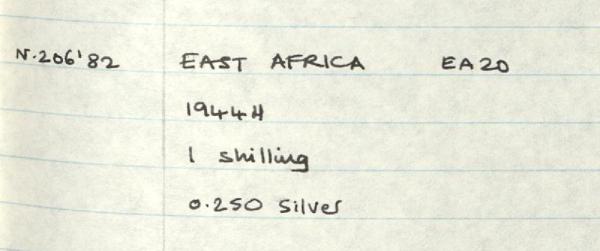 N.206'82 EAST AFRICA EA20
1944H
1 shilling
0.250 silver